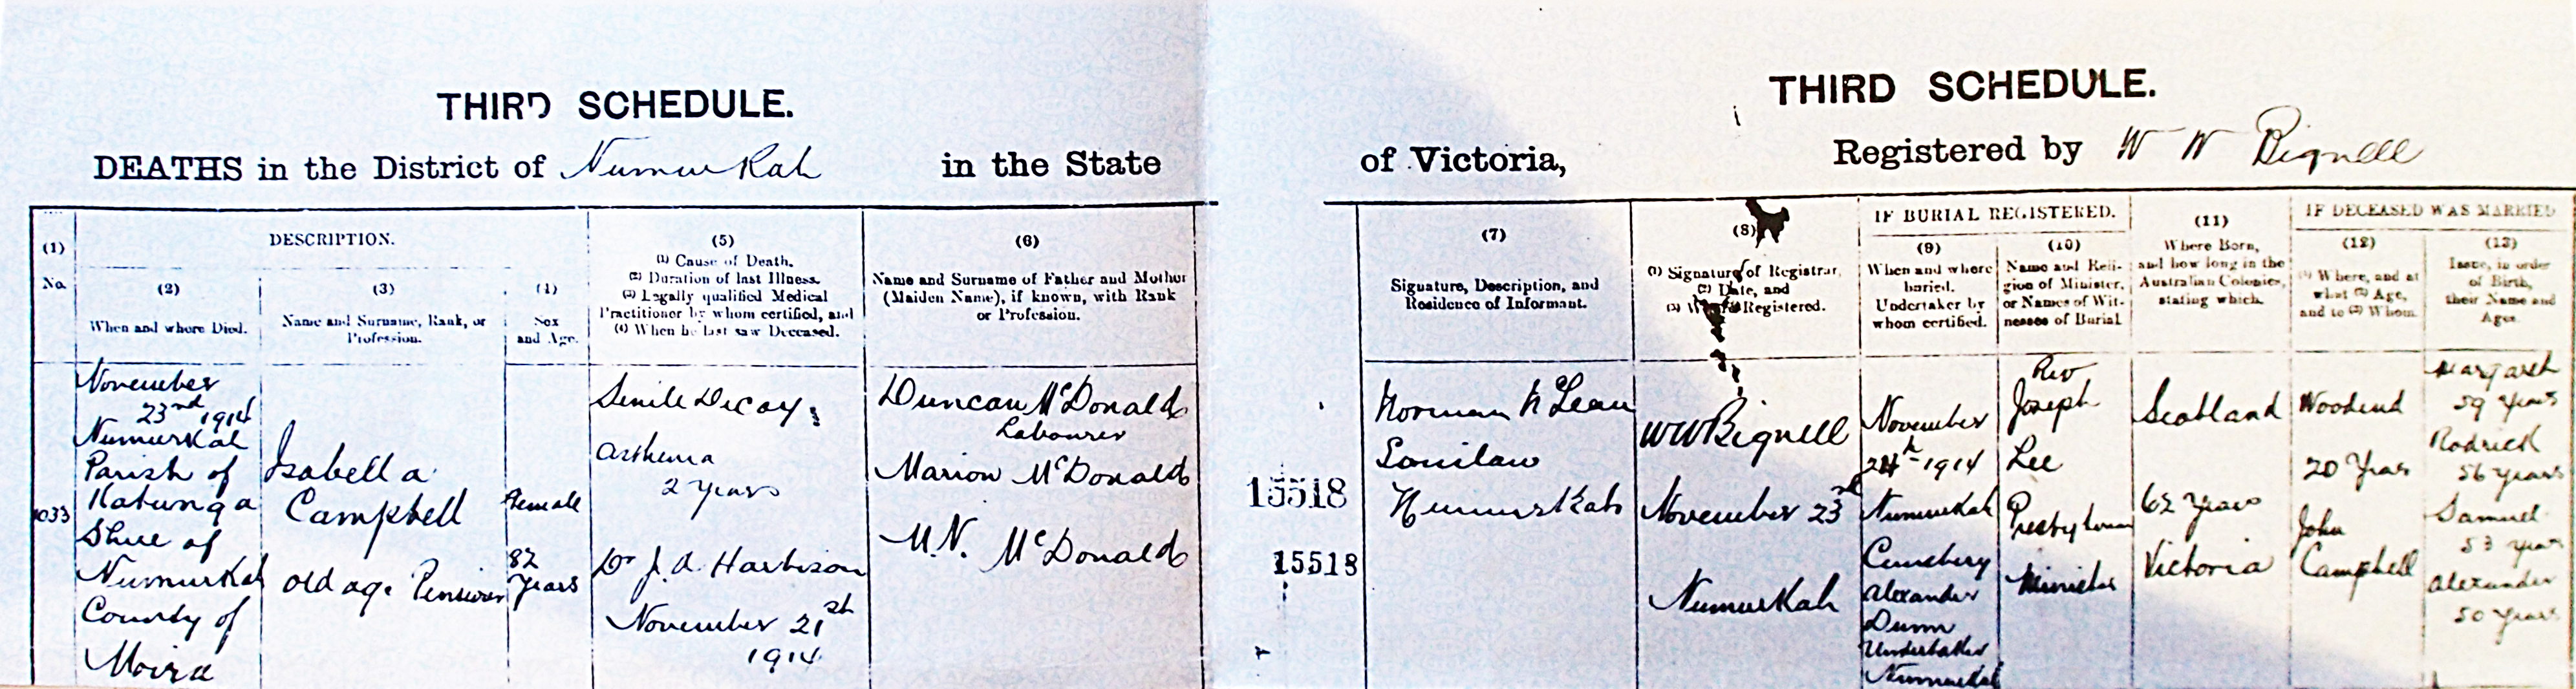 THIRD SCHEDULE.
DEATHS in the District of Numurkah in the State
THIRD SCHEDULE.
of Victoria, Registered by W W Bignell
(1)
No.
DESCRIPTION.
(2)
When and where Died.
(3)
Name and Surname, Rank, or
Profession.
(4)
Sex
and Age.
(5)
(1) Cause of Death.
(2) Duration of last Illness.
(3) Legally qualified Medical
Practitioner by whom certified, and
(4) When he last saw Deceased.
(6)
Name and Surname of Father and Mother
(Maiden Name), if known, with Rank
or Profession.
(7)
Signature, Description, and
Residence of Informant.
(8)
(1) Signature of Registrar,
(2) Date, and
(3) Registered.
IF BURIAL REGISTERED.
(9)
When and where
buried.
Undertaker by
whom certified.
(10)
Name and Reli-
gion of Minister,
or Names of Wit-
nesses of Burial
(11)
Where Born,
and how long in the
Australian Colonies,
stating which.
IF DECEASED WAS MARRIED
(12)
(1) Where, and at
what (2) Age,
and to (3) Whom.
(13)
Issue, in order
of Birth,
their Name and
Ages.
1033
November
23rd 1914
Numurkah
Parish of
Katunga
Shire of
Numurkah
County of
Moira
Isabella
Campbell
old age Pensioner
Female
82
Years
Senile Decay,
Asthenia
2 years
Dr J. A. Harbison
November 21st
1914
Duncan McDonald
Labourer
Marion McDonald
M.N. McDonald
15518
15518
Norman McLean
Sonilaw
Numurkah
WWBignell
November 23rd
Numurkah
November
24th 1914
Numurkah
Cemetery
Alexander
Dunn
Undertaker
Numurkah
Rev
Joseph
Lee
Presbyterian
Minister
Scotland
62 Years
Victoria
Woodend
20 Years
John
Campbell
Margaret
59 Years
Rodrick
56 years
Samuel
53 years
Alexander
50 years